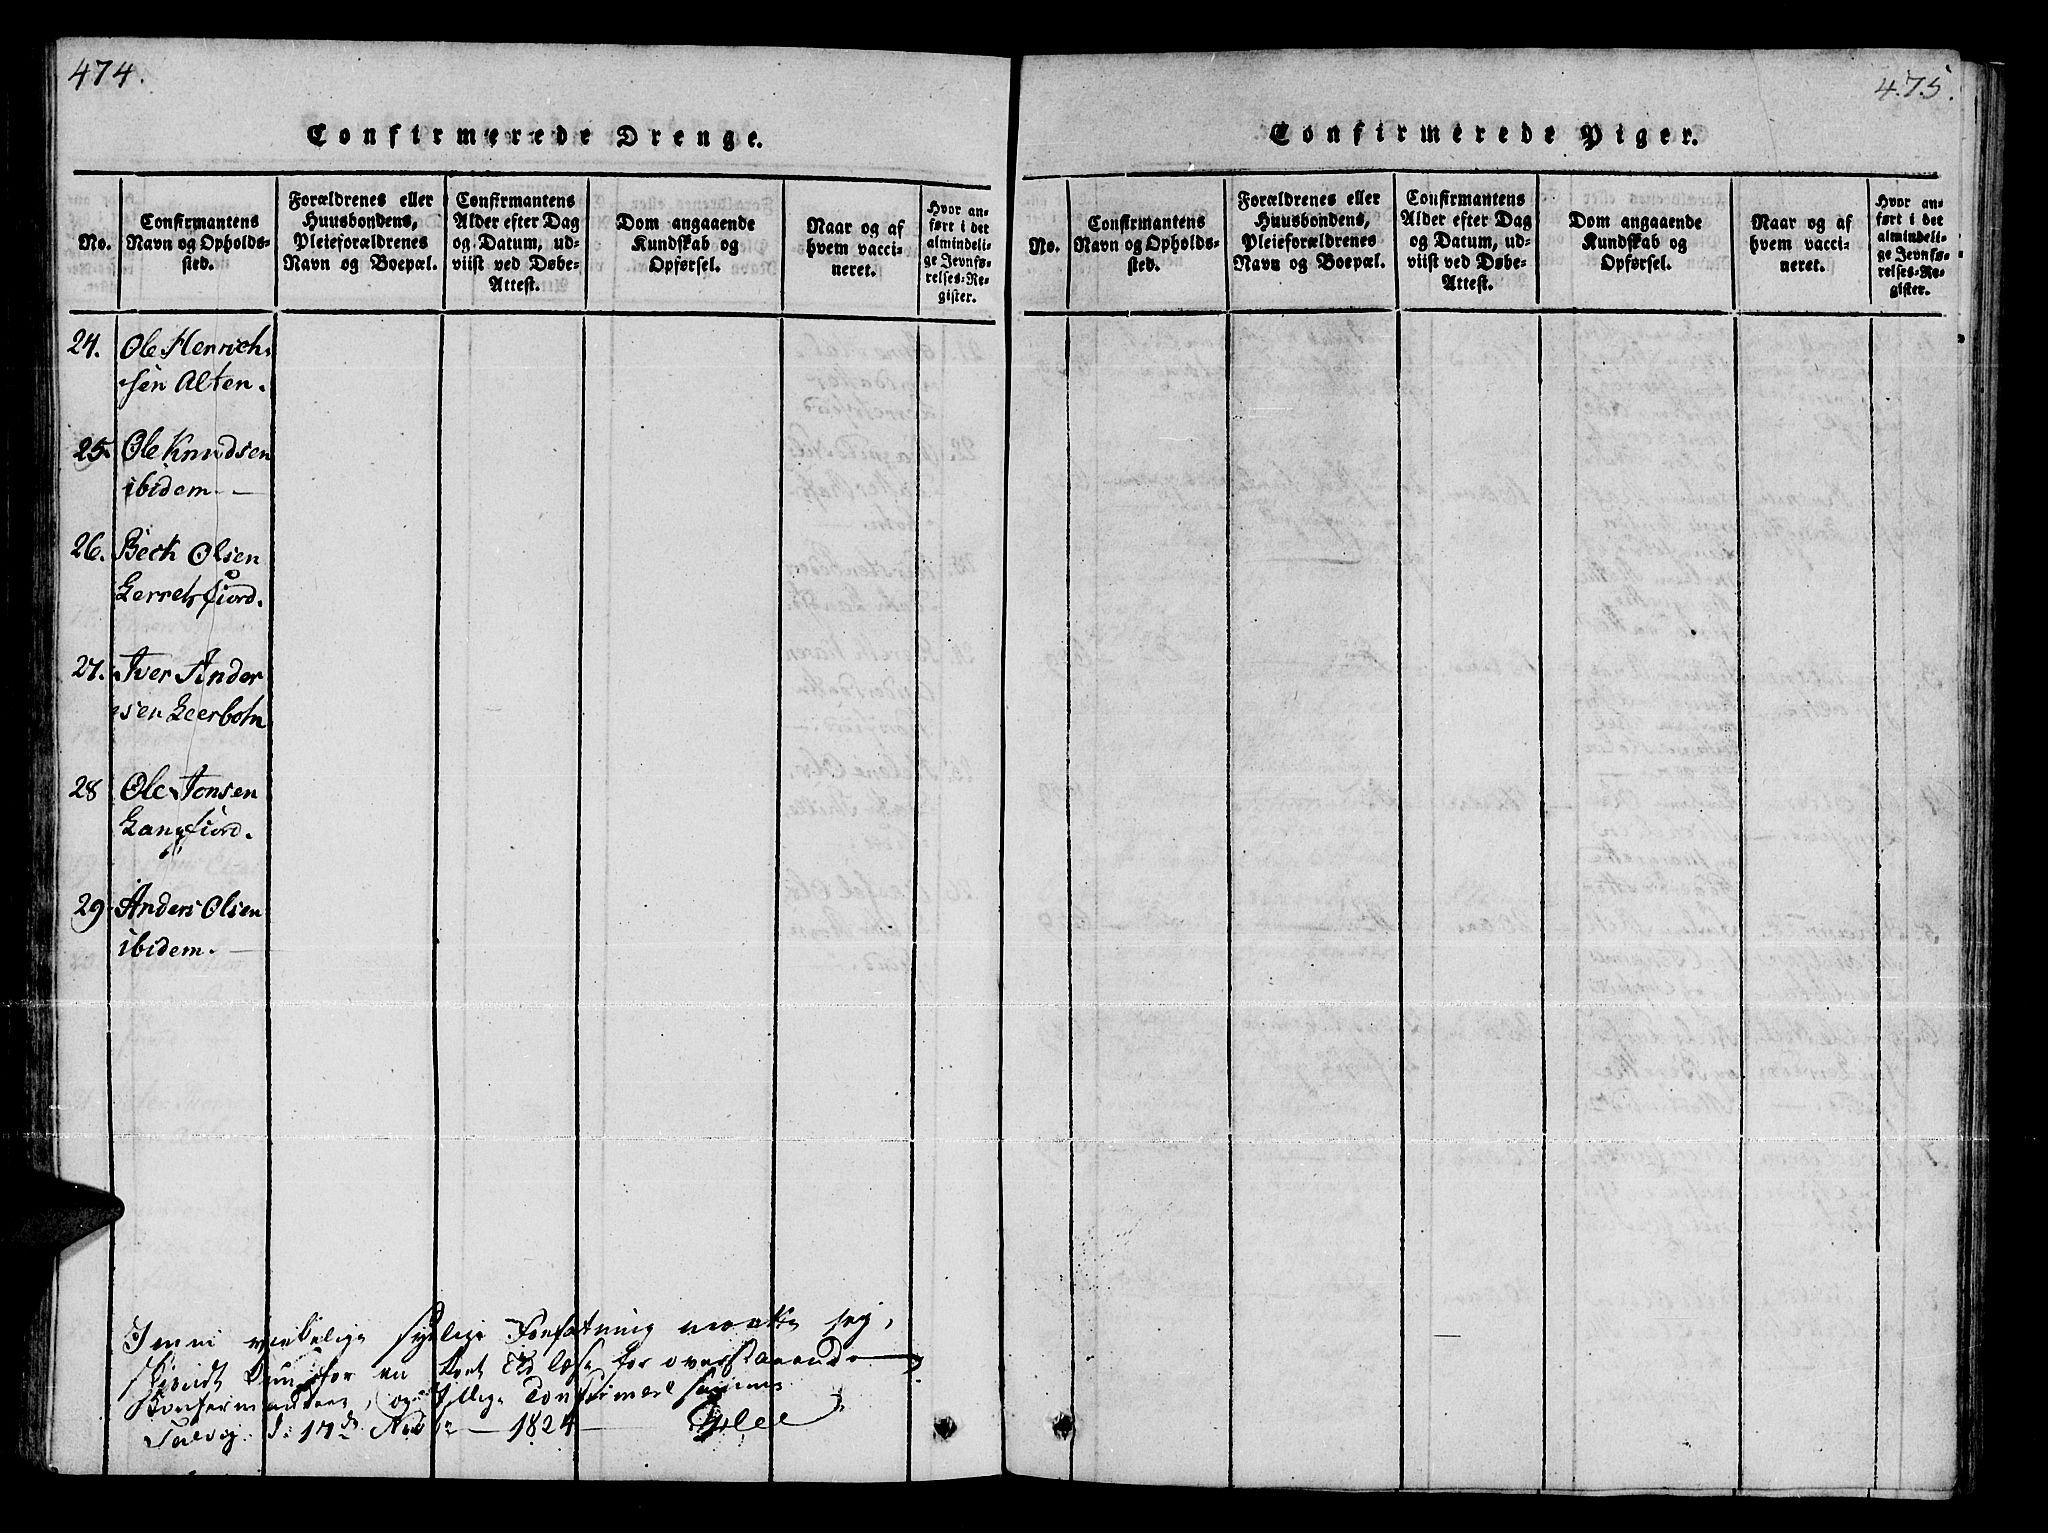 474.
Confirmerede Drenge.
No.
Confirmantens
Navn og Opholds-
sted.
Forældrenes eller
Huusbondens,
Pleieforældrenes
Navn og Boepæl.
Confirmantens
Alder efter Dag
og Datum, ud-
viist ved Døbe-
Attest.
Dom angaaende
Kundskab og
Opførsel.
Naar og af
hvem vacci-
neret.
Hvor an-
ført i det
almindeli-
ge Jevnfø-
relses-Re-
gister.
24. Ole Henrich
sen Alten.
25. Ole Knudsen
ibidem.
26. Beck Olsen
Lerretsfiord.
27. Iver Ander
sen Leerbotn
28 Ole Jonsen
Langfiord.
29 Anders Olsen
ibidem.
I min
Forfatning maatte jeg,
for overstaaende
og
Talvig d. 17de 1824
475.
Confirmerede Piger.
No.
Confirmantens
Navn og Opholds-
sted.
Forældrenes eller
Huusbondens,
Pleieforældrenes
Navn og Boepæl.
Confirmantens
Alder efter Dag
og Datum, ud-
viist ved Døbe-
Attest.
Dom angaaende
Kundskab og
Opførsel.
Naar og af
hvem vacci-
neret.
Hvor an-
ført i det
almindeli-
ge Jevnfø-
relses-Re-
gister.